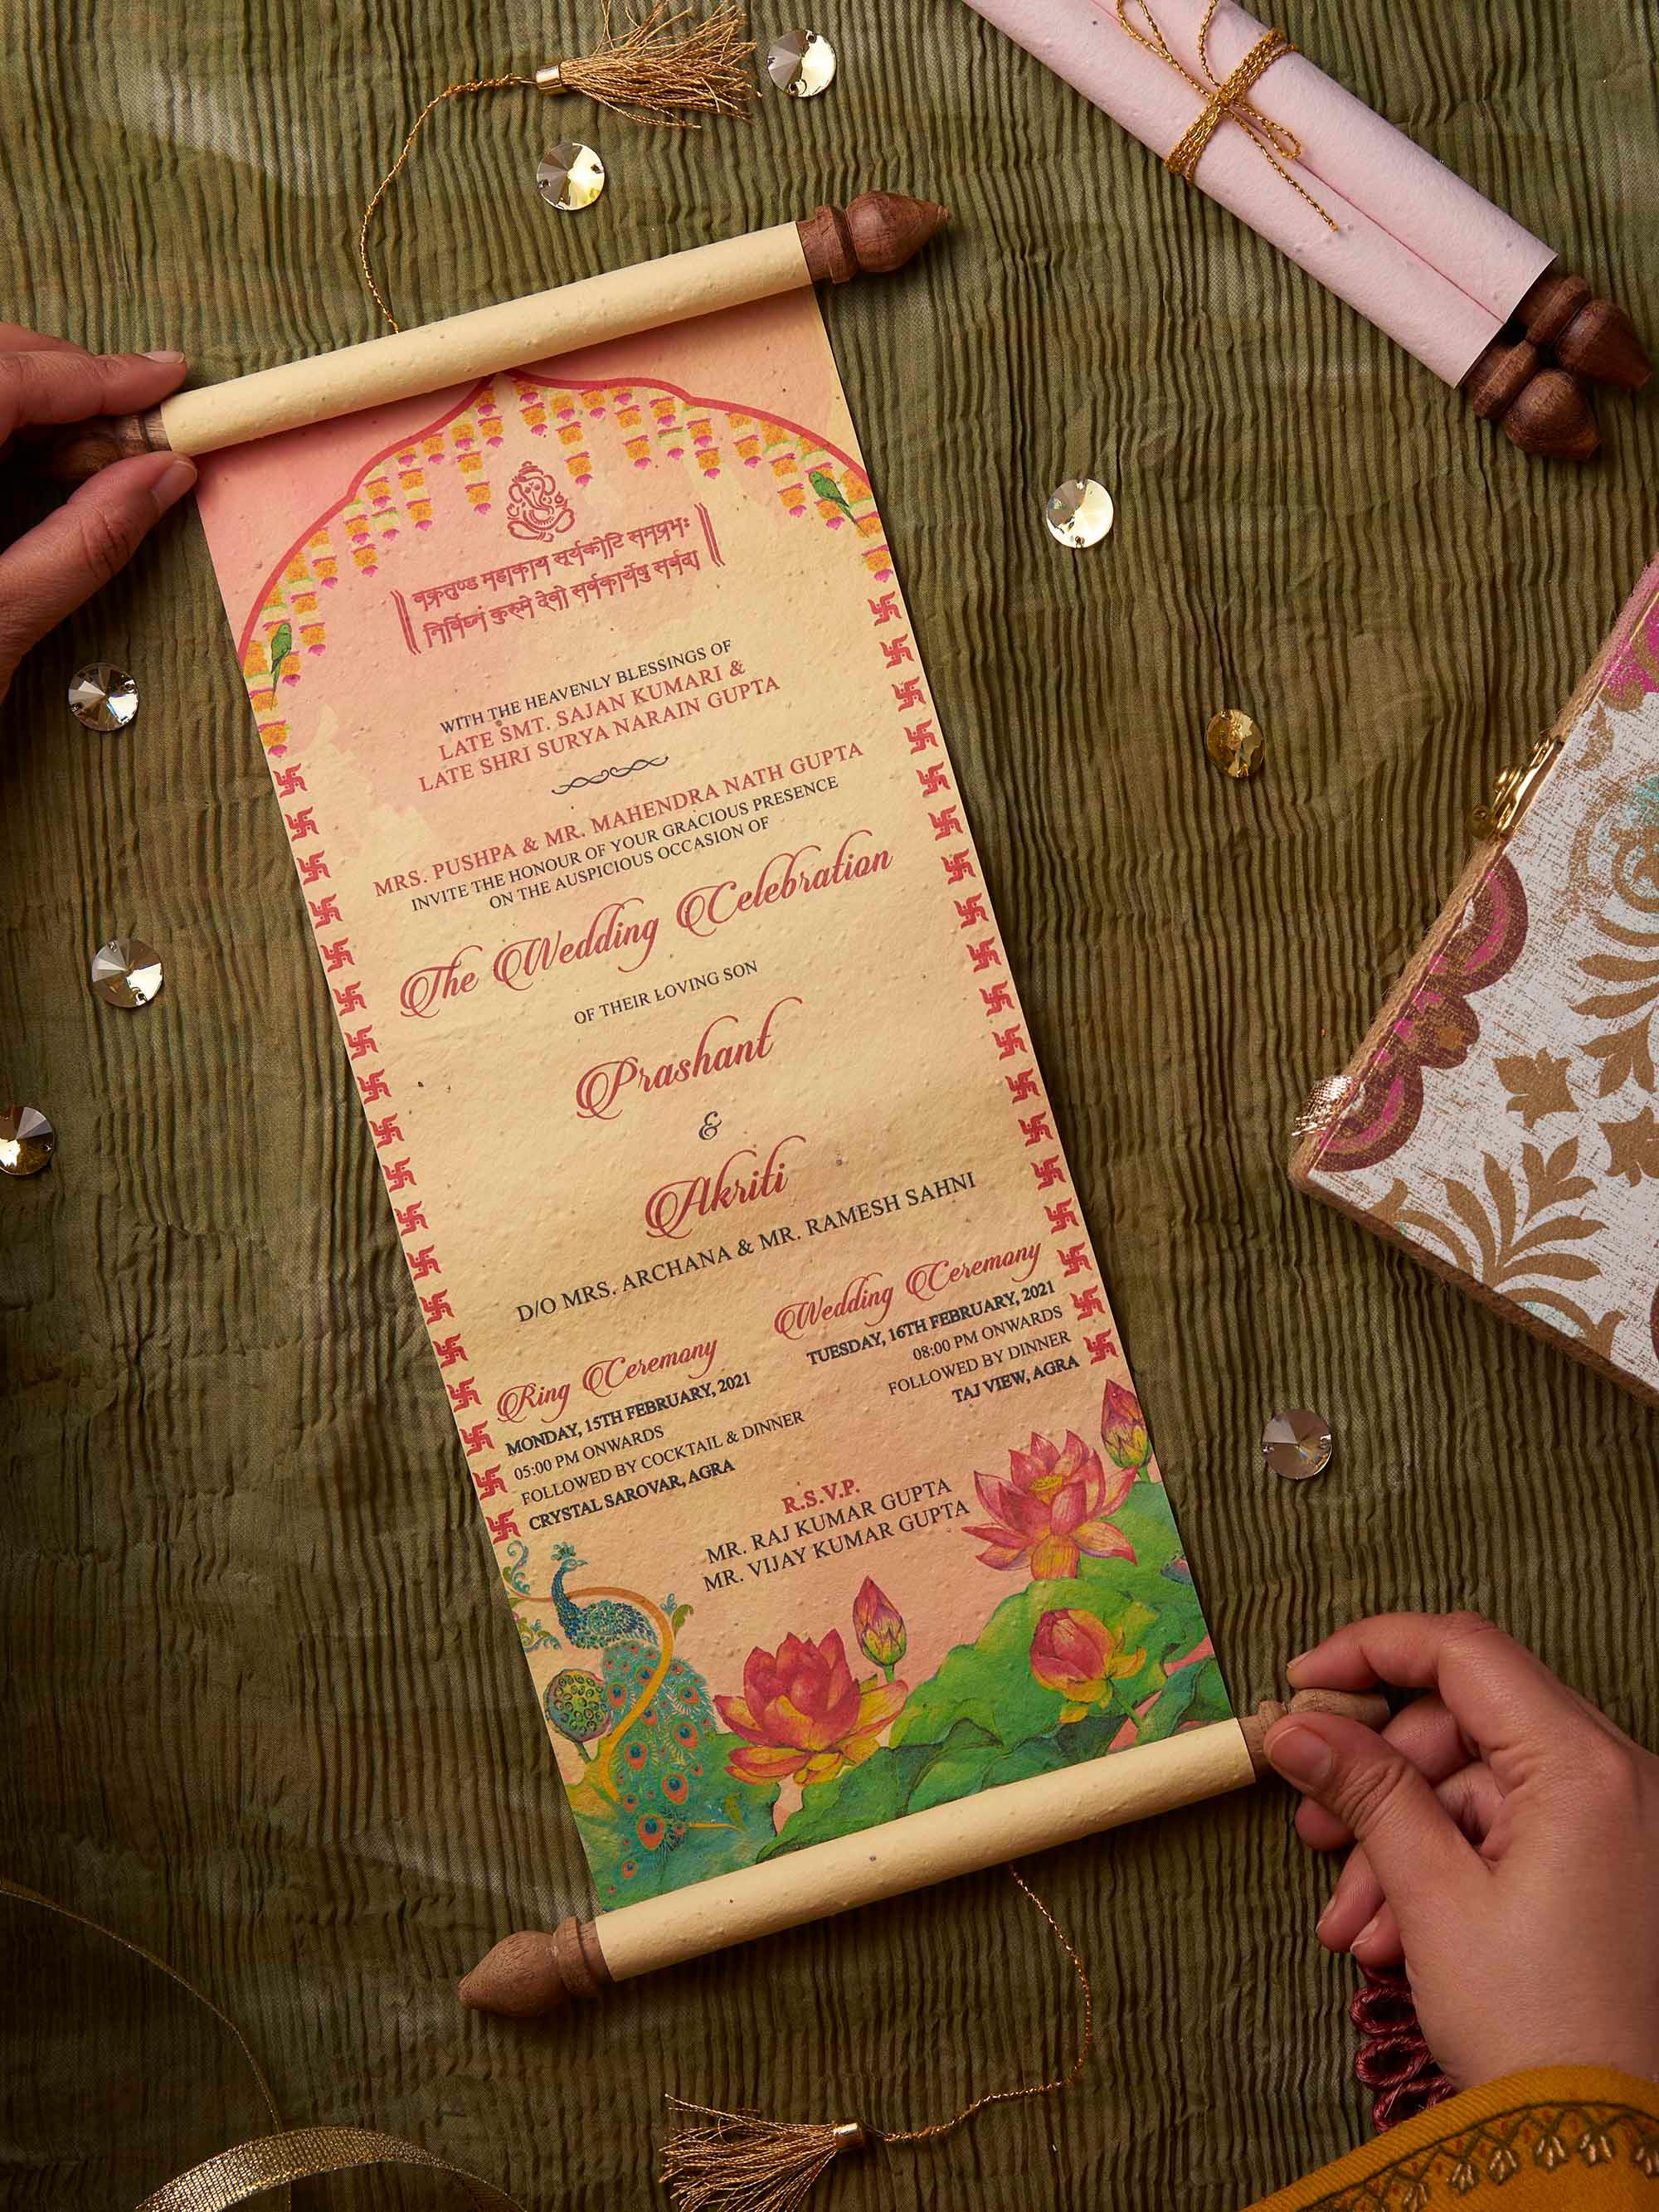 || वक्रतुण्ड महाकाय सूर्यकोटि समप्रभः
निर्विघ्नं कुरुमे देवो सर्वकार्येषु सर्वदा ||
WITH THE HEAVENLY BLESSINGS OF
LATE SMT. SAJAN KUMARI &
LATE SHRI SURYA NARAIN GUPTA
MRS. PUSHPA & MR. MAHENDRA NATH GUPTA
INVITE THE HONOUR OF YOUR GRACIOUS PRESENCE
ON THE AUSPICIOUS OCCASION OF
The Wedding Celebration
OF THEIR LOVING SON
Prashant
&
Akriti
D/O MRS. ARCHANA & MR. RAMESH SAHNI
Ring Ceremony
MONDAY, 15TH FEBRUARY, 2021
05:00 PM ONWARDS
FOLLOWED BY COCKTAIL & DINNER
CRYSTAL SAROVAR, AGRA
Wedding Ceremony
TUESDAY, 16TH FEBRUARY, 2021
08:00 PM ONWARDS
FOLLOWED BY DINNER
TAJ VIEW, AGRA
R.S.V.P.
MR. RAJ KUMAR GUPTA
MR. VIJAY KUMAR GUPTA